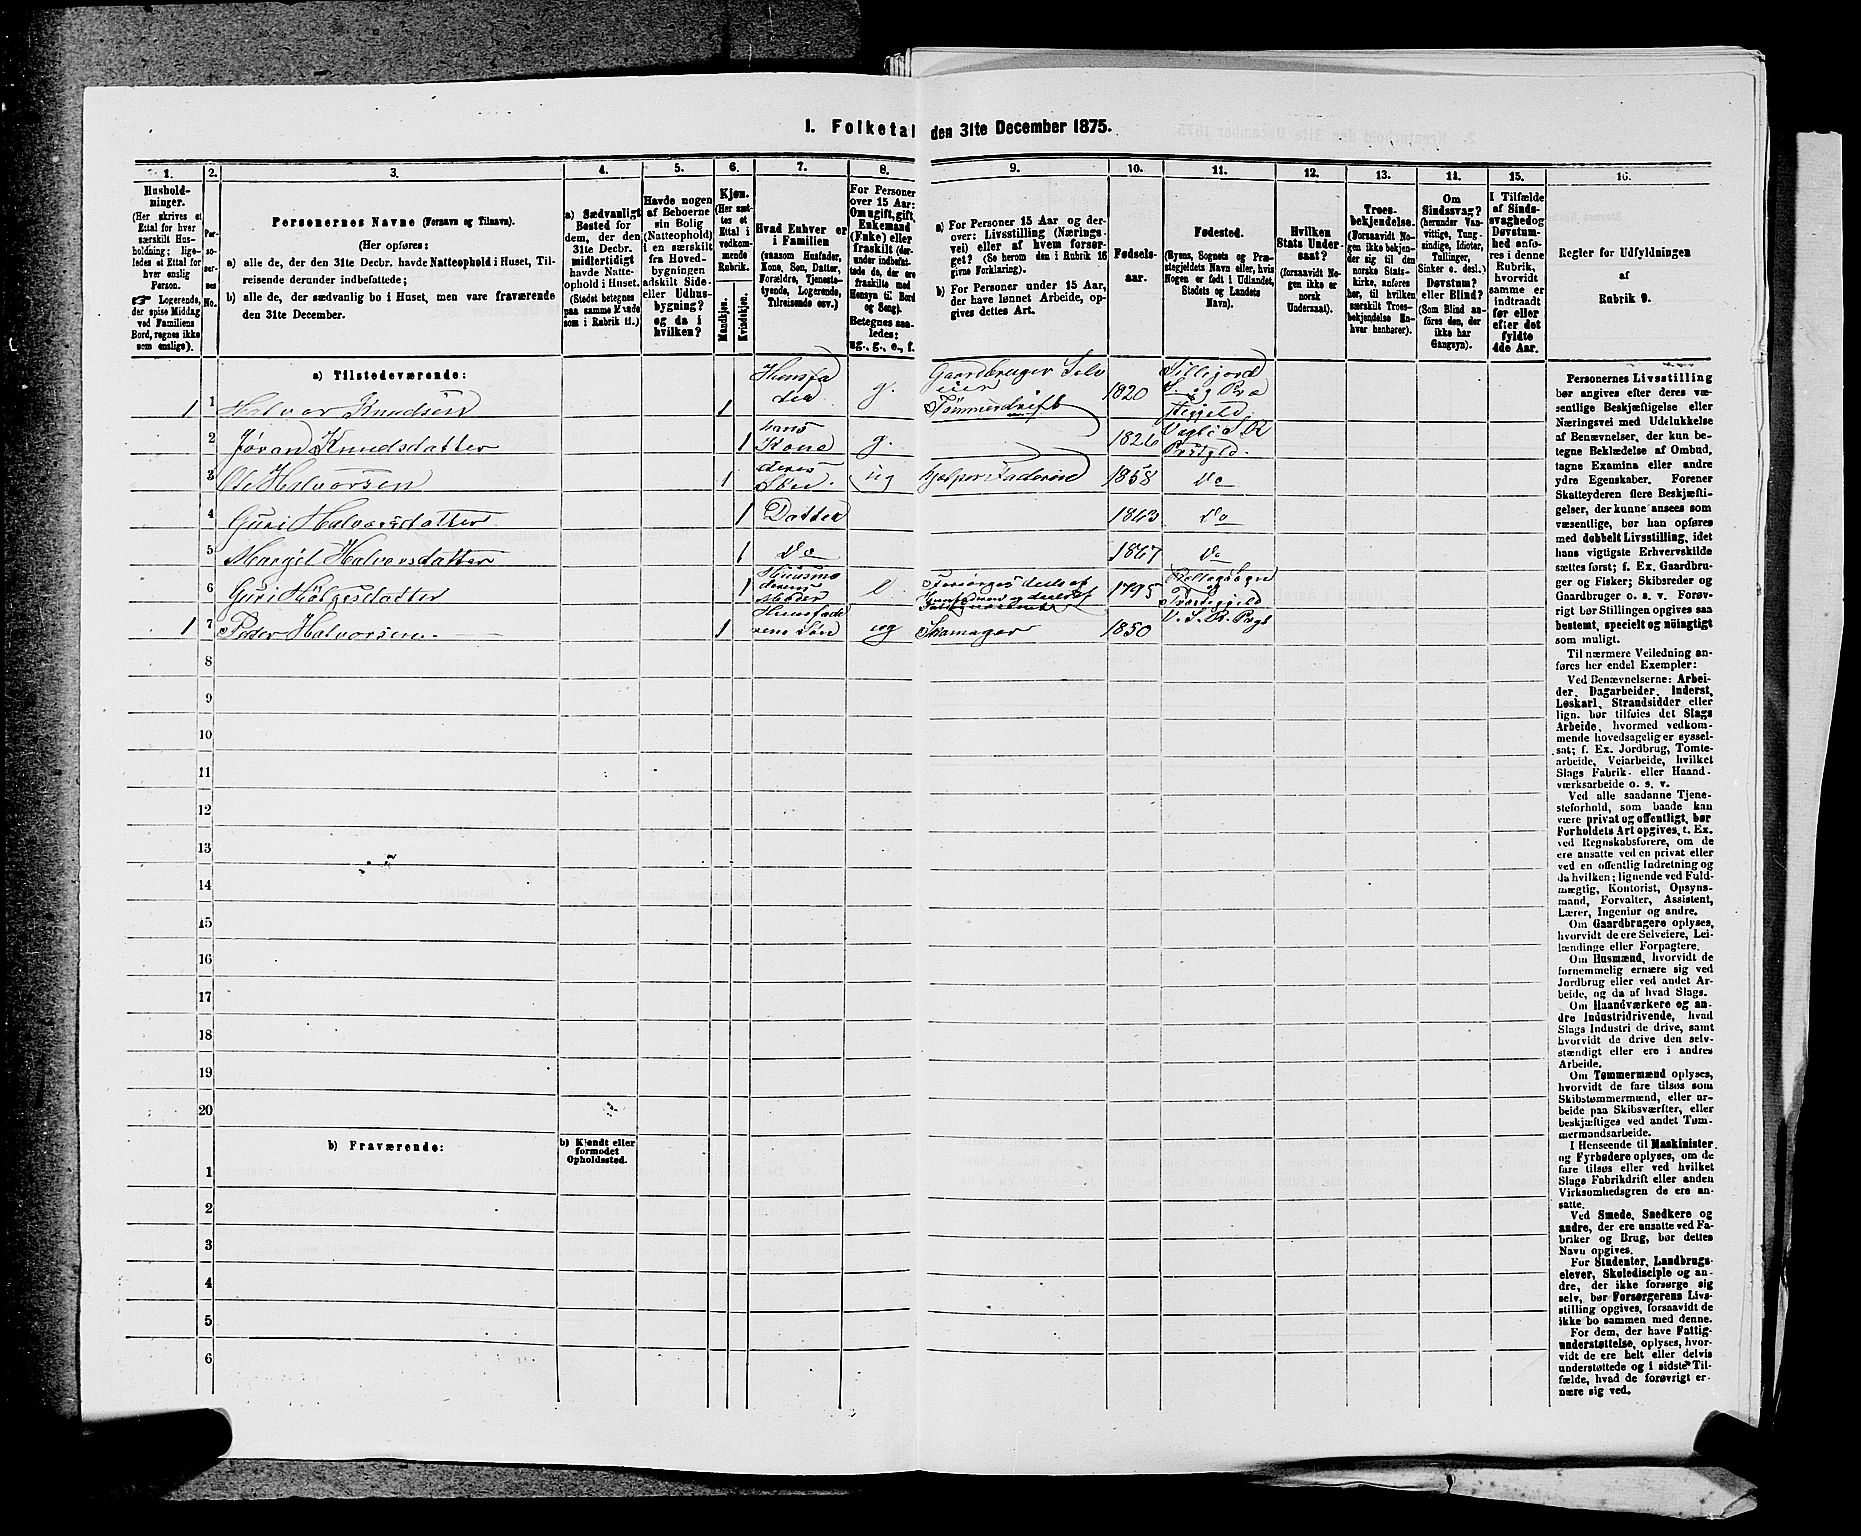 1. Folketal den 31te December 1875.
1.
Hushold-
ninger.
(Her skrives et
Ettal for hver
særskilt Hus-
holdning; lige-
ledes et Ettal for
hver enslig
Person.
☞ Logerende,
der spise Middag
ved Familiens
Bord, regnes ikke
som enslige).
2.
Per-
so-
ner-
nes
No.
3.
Personernes Navne (Fornavn og Tilnavn).
(Her opføres:
a) alle de, der den 31te Decbr. havde Natteophold i Huset, Til-
reisende derunder indbefattede;
b) alle de, der sædvanlig bo i Huset, men vare fraværende
den 31te December.
4.
a) Sædvanligt
Bosted for
dem, der den
31te Decbr.
midlertidigt
havde Natte-
ophold i Huset.
(Stedet betegnes
paa samme Maade
som i Rubrik 11.)
5.
Havde nogen
af Beboerne
sin Bolig
(Natteophold)
i en særskilt
fra Hoved-
bygningen
adskilt Side-
eller Udhus-
bygning?
og da i
hvilken?
6.
Kjøn.
(Her sæt-
tes et
Ettal i
vedkom-
mende
Rubrik.
Mandkjøn.
Kvindekjøn.
7.
Hvad Enhver er
i Familien
(saasom Husfader,
Kone, Søn, Datter,
Forældre, Tjeneste-
tyende, Logerende,
Tilreisende osv.)
8.
For Personer
over 15 Aar:
Om ugift, gift,
Enkemand
(Enke) eller
fraskilt (der-
under indbefat-
tede de, der ere
fraskilte med
Hensyn til Bord
og Seng).
Betegnes saa-
ledes:
ug., g., e., f.
9.
a) For Personer 15 Aar og der-
over: Livsstilling (Nærings-
vei) eller af hvem forsør-
get? (Se herom den i Rubrik 16
givne Forklaring).
b) For Personer under 15 Aar,
der have lønnet Arbeide, op-
gives dettes Art.
10.
Fødsels-
aar.
11.
Fødested.
(Byens, Sognets og Præ-
stegjeldets Navn eller, hvis
Nogen er født i Udlandet,
Stedets og Landets
Navn).
12.
Hvilken
Stats Under-
saat?
(forsaavidt No-
gen ikke er
norsk
Undersaat).
13.
Troes-
bekjendelse.
(Forsaavidt No-
gen ikke bekjen-
der sig til den
norske Stats-
kirke, anføres
her, til hvilken
særskilt Troes-
bekjendelse En-
hver henhører).
14.
Om
Sindssvag?
(herunder Van-
vittige, Tung-
sindige, Idioter,
Tullinger,
Sinker o. desl.)
Døvstum?
eller Blind?
(Som Blind an-
føres den, der
ikke har
Gangsyn).
15.
I Tilfælde
af Sinds-
svaghed og
Døvstum-
hed anfø-
res i denne
Rubrik,
hvorvidt
samme er
indtraadt
før eller
efter det
fyldte
4de Aar.
16.
Regler for Udfyldningen
af
Rubrik 9.
a) Tilstedeværende:
1 1 Halvor Knudsen 1 Husfa
der g. Gaardbruger Selv
eier
Tømmerdrift 1820
2 Jøran Knudsdatter 1 hans
Kone g. 1826
3 Ole Halvorsen 1 deres
Søn ug hjelper Faderen 1858 Do
4 Guri Halvorsdatter 1 Datter 1863 Do
5 Margit Halvorsdatter 1 Do 1867 Do
6 Guri Helgesdatter 1 Moder e 1795
1 7 Peder Halvorsen 1 Husfade
rens Søn ug Skomager 1850
8
9
10
11
12
13
14
15
16
17
18
19
20
b) Fraværende:
b) Kjendt eller
formodet
Opholdssted.
1
2
3
4
5
6
Personernes Livsstilling
bør angives efter deres væ-
sentlige Beskjæftigelse eller
Næringsvei med Udelukkelse
af Benævnelser, der kun be-
tegne Beklædelse af Ombud,
tagne Examina eller andre
ydre Egenskaber. Forener
Skatteyderen flere Beskjæfti-
gelser, der kunne ansees som
væsentlige, bør han opføres
med dobbelt Livsstilling, idet
hans vigtigste Erhvervskilde
sættes først; f. Ex. Gaardbru-
ger og Fisker; Skibsreder og
Gaardbruger o. s. v. Forøv-
rigt bør Stillingen opgives saa
bestemt, specielt og nøiagtigt
som muligt.
Til nærmere Veiledning an-
føres her endel Exempler:
Ved Benævnelserne: Arbei-
der, Dagarbeider, Inderst,
Løskarl, Strandsidder eller
lign. bør tilføies det Slags
Arbeide, hvormed vedkom-
mende hovedsagelig er syssel-
sat; f. Ex. Jordbrug, Tomte-
arbeide, Veiarbeide, hvilket
Slags Fabrik- eller Haand-
værksarbeide o. s. v.
Ved alle saadanne Tjene-
steforhold, som baade kan
være privat og offentligt, bør
Forholdets Art opgives, t. Ex.
ved Regnskabsførere, om de
ere ansatte ved en privat eller
ved en offentlig Indretning og
da hvilken; lignende ved Fuld-
mægtig, Kontorist, Opsyns-
mand, Forvalter, Assistent,
Lærer, Ingeniør og andre.
Om Gaardbrugere oplyses,
hvorvidt de ere Selveiere, Lei-
lændinge eller Forpagtere.
Om Husmænd, hvorvidt de
fornemmelig ernære sig ved
Jordbrug eller ved andet Ar-
beide, og da af hvad Slags.
Om Haandværkere og an-
dre Industridrivende, hvad
Slags Industri de drive, samt
hvorvidt de drive den selv-
stændigt eller ere i andres
Arbeide.
Om Tømmermænd oplyses,
hvorvidt de fare tilsøs som
Skibstømmermænd, eller ar-
beide paa Skibsværfter, eller
beskjæftiges ved andet Tøm-
mermandsarbeide.
I Henseende til Maskinister
og Fyrbødere oplyses, om de
fare tilsøs eller ved hvilket
Slags Fabrikdrift eller anden
Virksomhedsgren de ere an-
satte.
Ved Smede, Snedkere og
andre, der ere ansatte ved Fa-
briker og Brug, bør dettes
Navn opgives.
For Studenter, Landbrugs-
elever, Skoledisciple og an-
dre, der ikke forsørge sig
selv, bør Forsørgerens Livs-
stilling opgives, forsaavidt de
ikke bo sammen med denne.
For dem, der have Fattig-
understøttelse, oplyses, hvor-
vidt de ere helt eller delvis
understøttede og i sidste Til-
fælde, hvad de forøvrigt er-
nære sig ved.